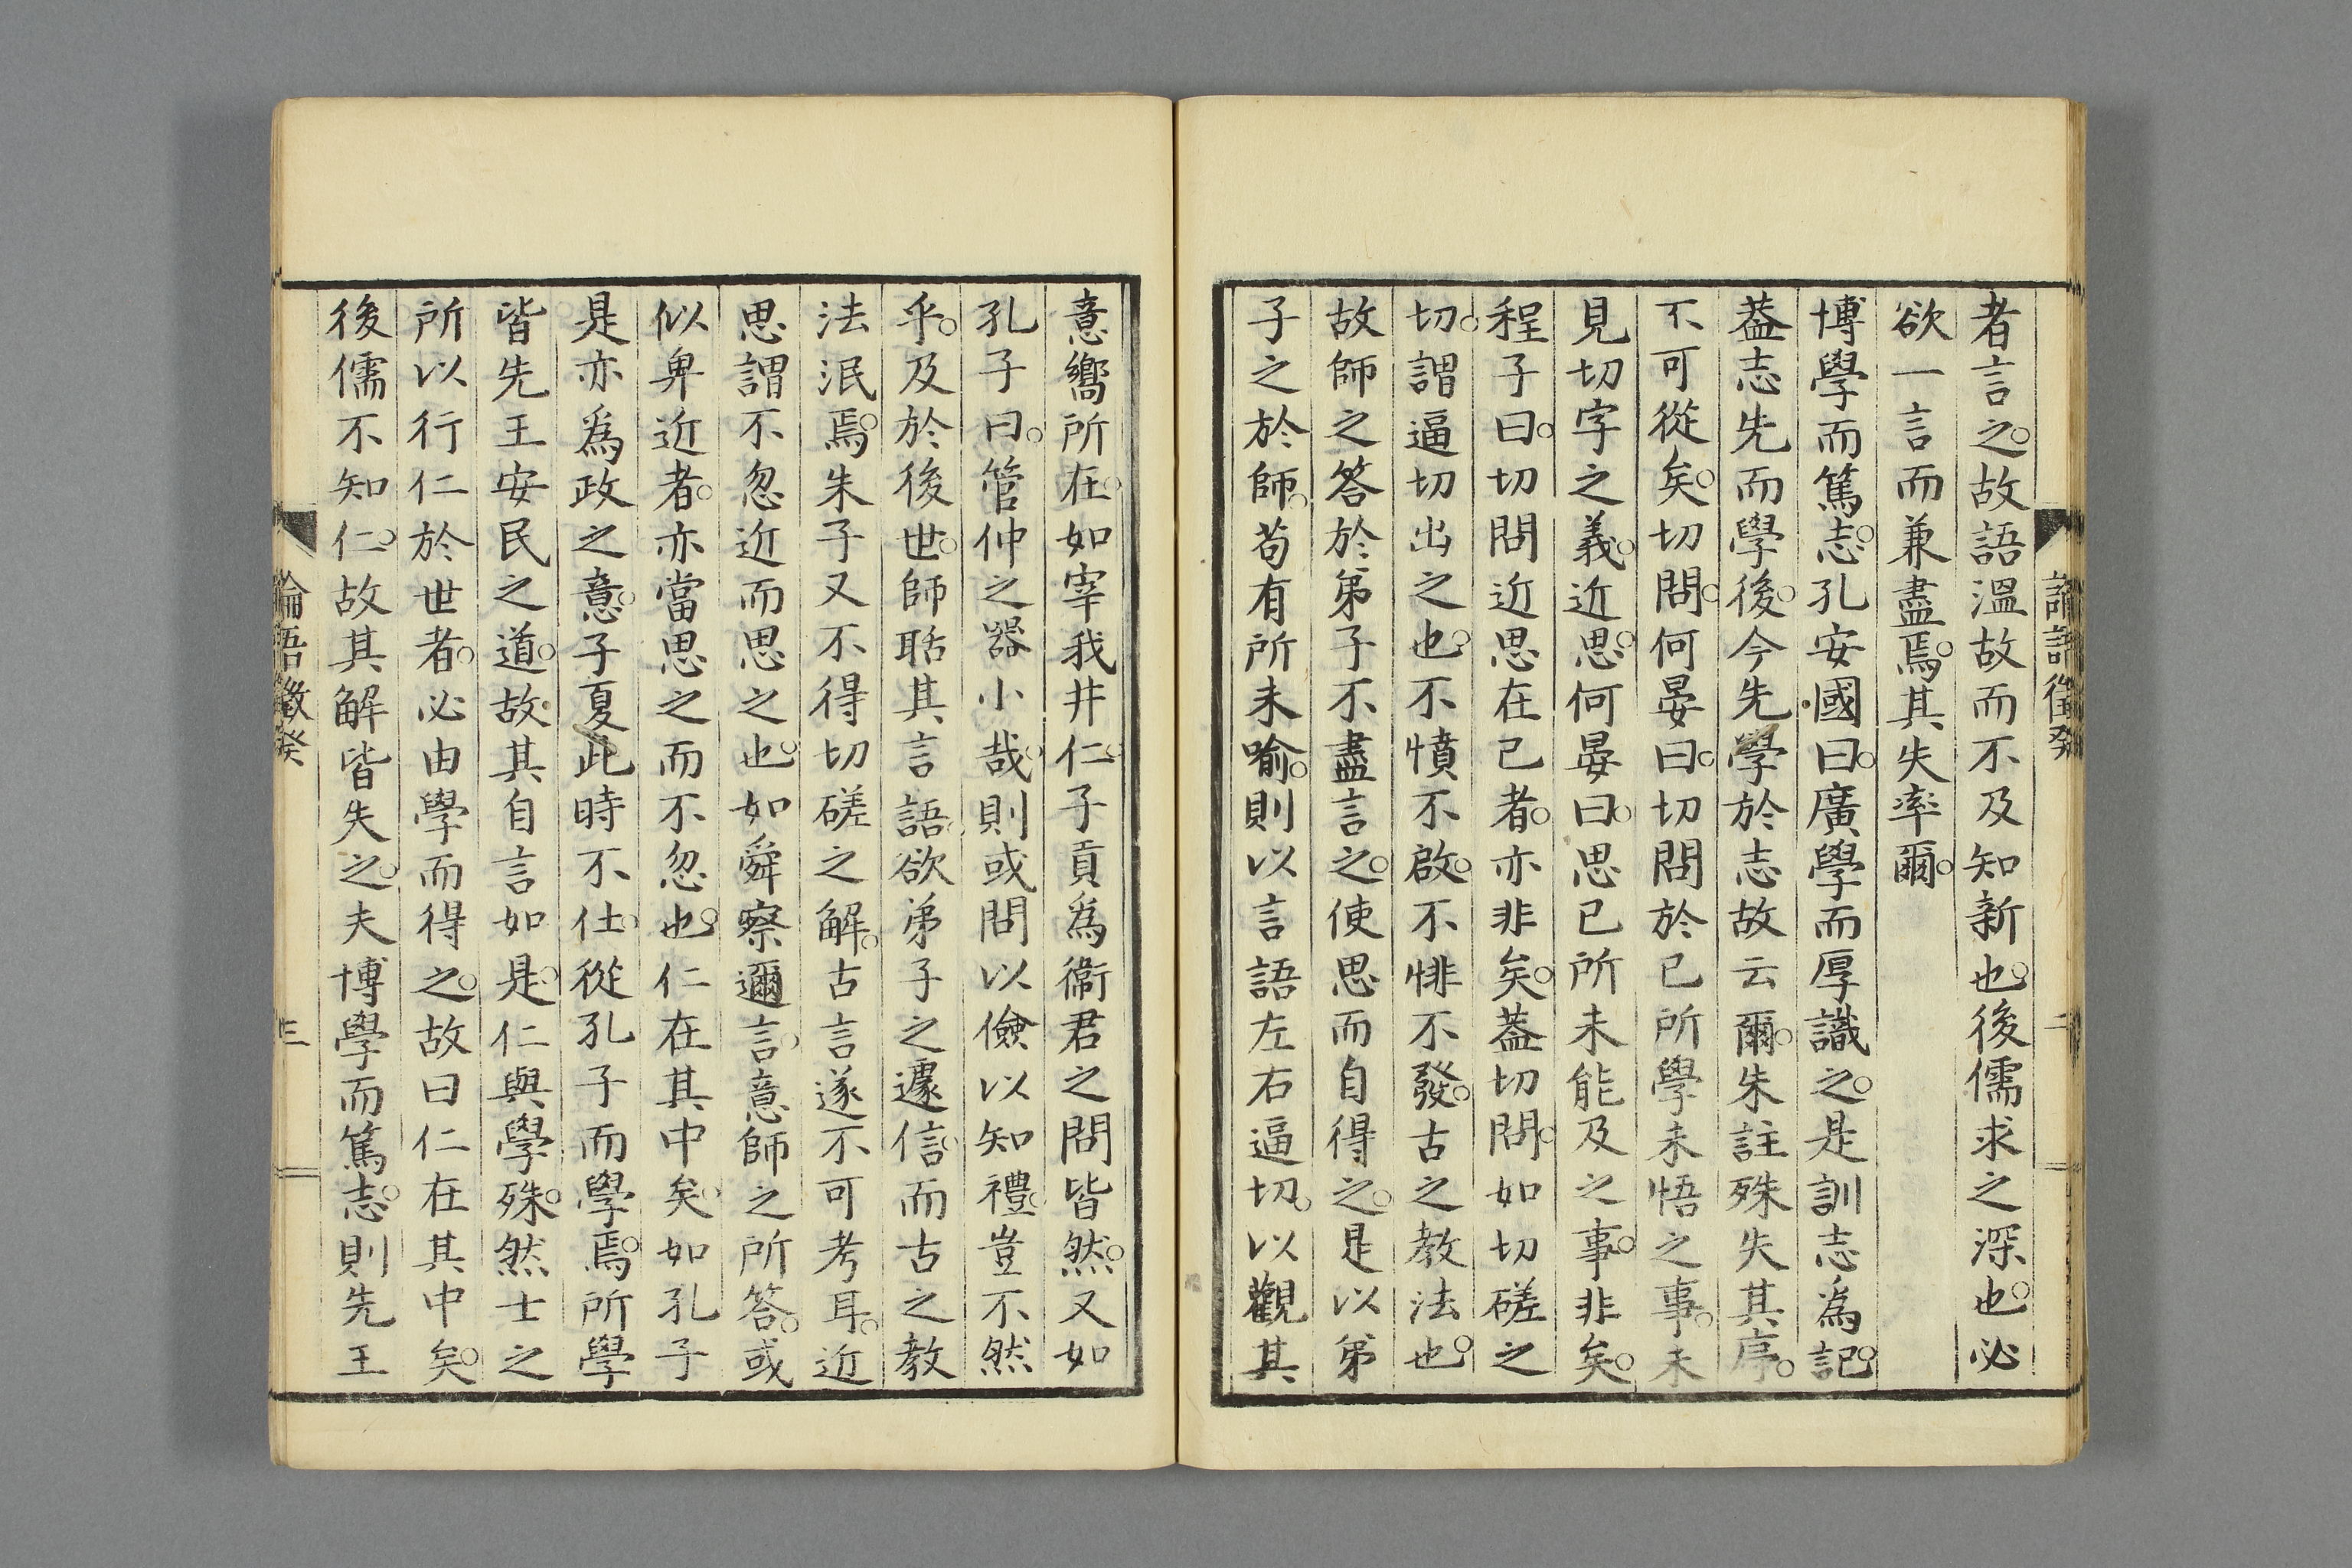 者言之。故語溫故而不及知新也。後儒求之深也。必
欲一言而兼盡焉。其失率爾。
博學而篤志。孔安國曰。廣學而厚識之。是訓志爲記。
葢志先而學後。今先學於志故云爾。朱註殊失其序。
不可從矣。切問。何晏曰。切問於己所學未悟之事。未
見切字之義。近思。何晏曰。思己所未能及之事。非矣。
程子曰。切問近思在己者。亦非矣。葢切問。如切磋之
切。謂逼切出之也。不憤不啟。不悱不發。古之教法也。
故師之答於弟子不盡言之。使思而自得之。是以弟
子之於師。苟有所未喻。則以言語左右逼切。以觀其
意嚮所在。如宰我井仁。子貢爲衞君之問皆然。又如
孔子曰。管仲之器小哉。則或問以儉以知禮。豈不然
乎。及於後世。師聒其言語。欲弟子之遽信。而古之教
法泯焉。朱子又不得切磋之解。古言遂不可考耳。近
思謂不忽近而思之也。如舜察邇言。意師之所答。或
似卑近者。亦當思之而不忽也。仁在其中矣。如孔子
是亦爲政之意。子夏此時不仕。從孔子而學焉。所學
皆先王安民之道。故其自言如是。仁與學殊。然士之
所以行仁於世者。必由學而得之。故曰仁在其中矣。
後儒不知仁。故其解皆失之。夫博學而篤志。則先王
論語徵癸
二
論語徵癸
三